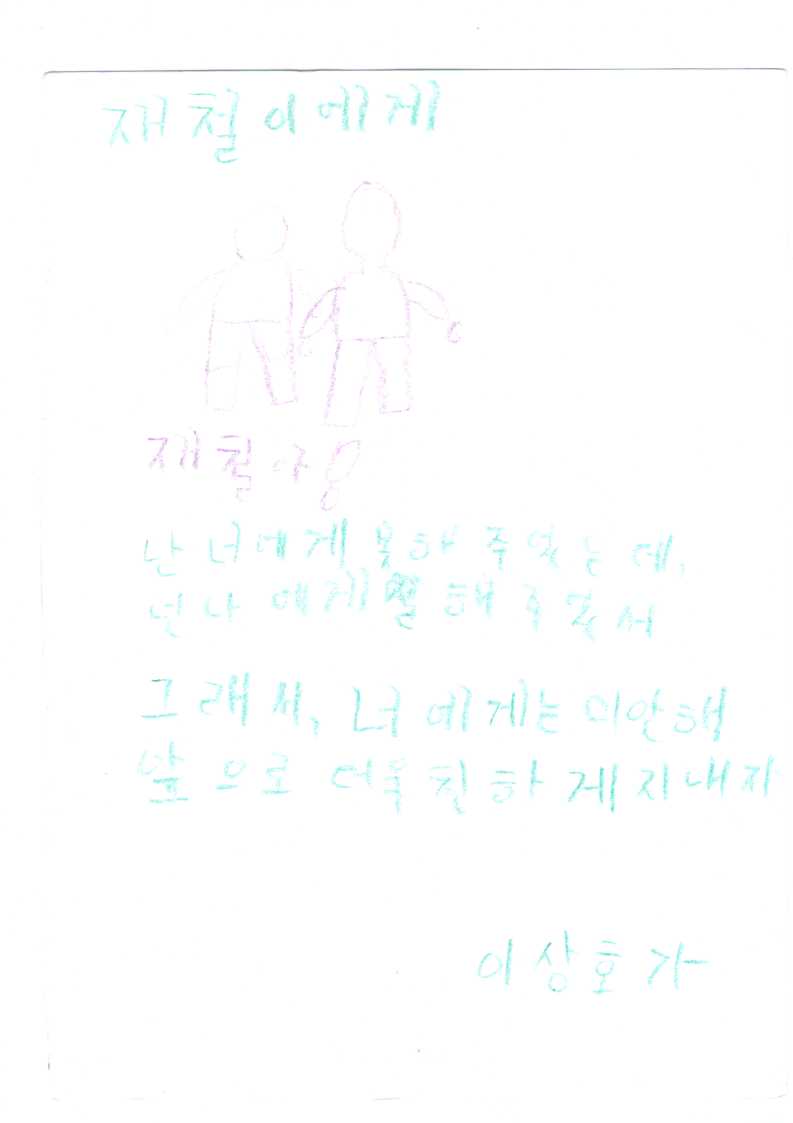 재철이에게
재철아!
난 너에게 못해 주었는데,
넌 나에게 잘해 주었서
그래서, 너에게는 미안해
앞으로 더욱 친하게 지내자
이상호가